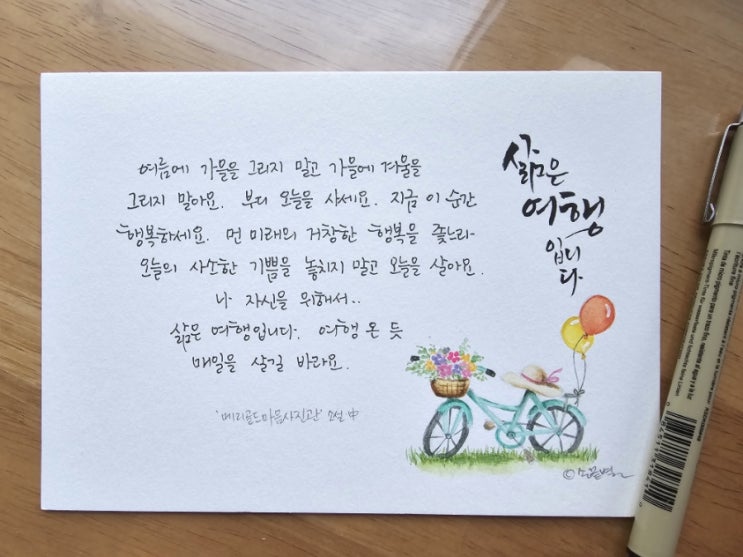 여름에 가을을 그리지 말고 가을에 겨울을
그리지 말아요. 부디 오늘을 사세요. 지금 이 순간
행복하세요. 먼 미래의 거창한 행복을 좇느라
오늘의 사소한 기쁨을 놓치지 말고 오늘을 살아요.
나 자신을 위해서..
삶은 여행입니다. 여행 온 듯
매일을 살길 바라요.
'메리골드마음사진관' 소설 中
삶은
여행
입니
다